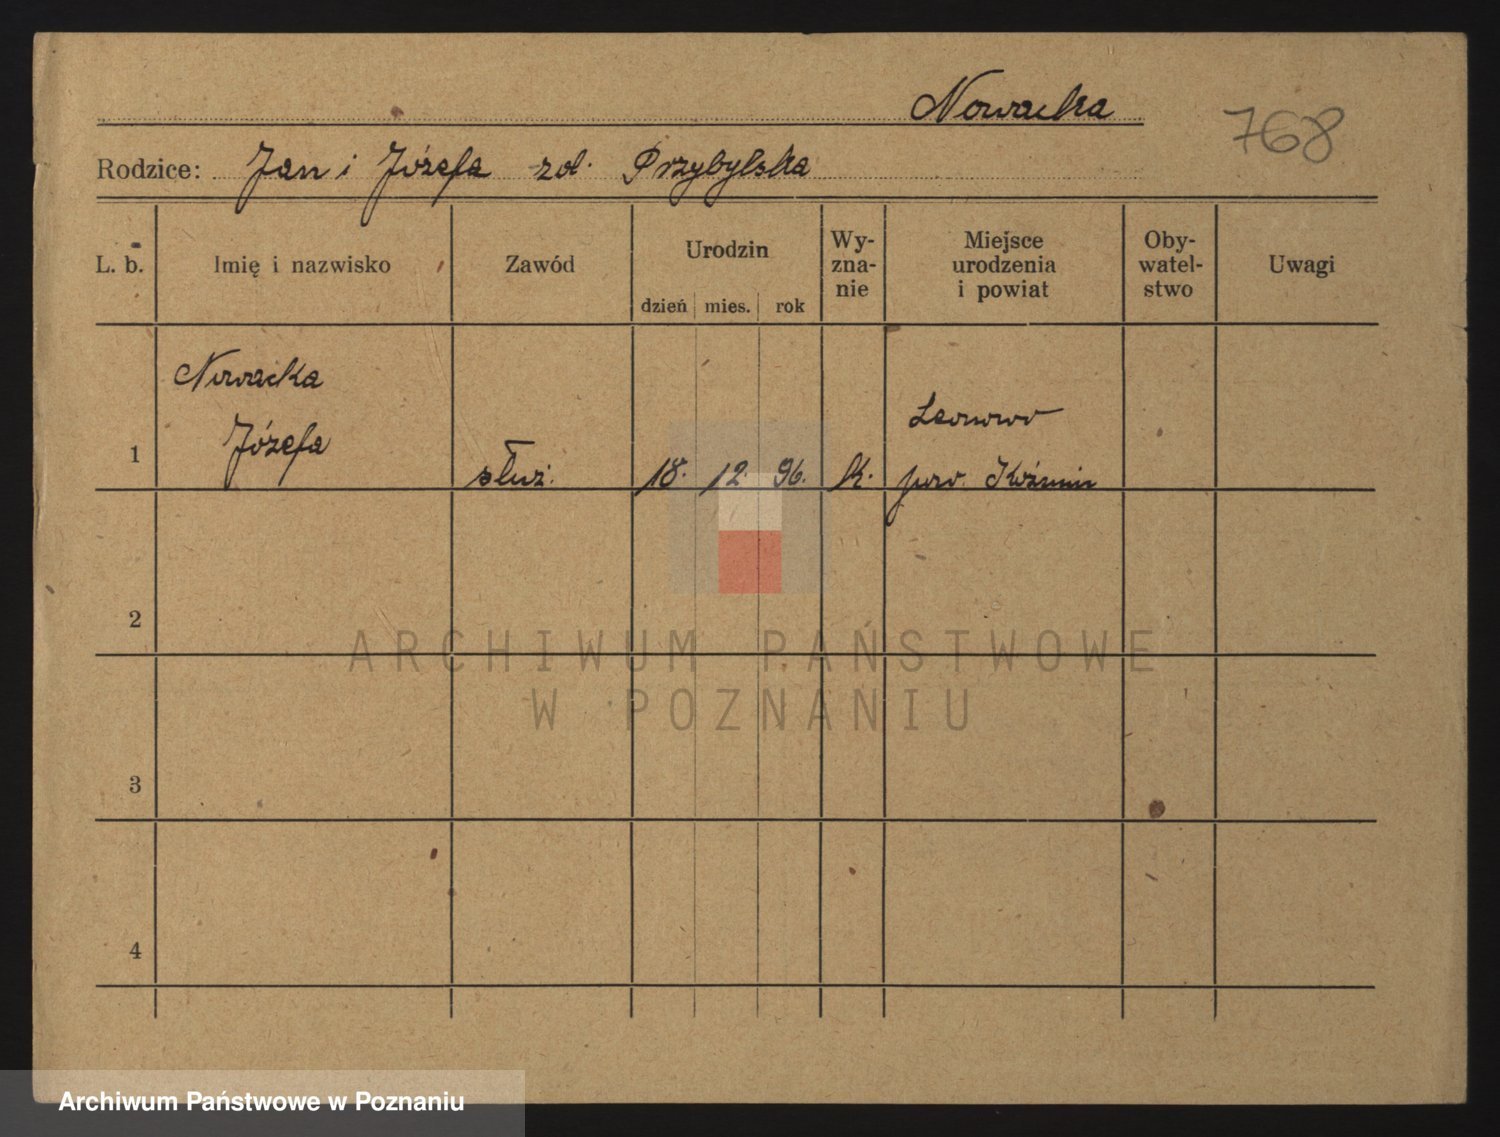 Nowacka
768
Rodzice: Jan i Józefa zd. Przybylska
L. b. Imię i nazwisko Zawód Urodzin dzień mies. rok Wy-zna-nie Miejsce urodzenia i powiat Oby-watel-stwo Uwagi
Nowacka
Józefa
Leonowo
1 służ. 18. 12. 96. k. pow. Koźmin
2
ARCHIWUM PAŃSTWOWE
W POZNANIU
3
4
Archiwum Państwowe w Poznaniu